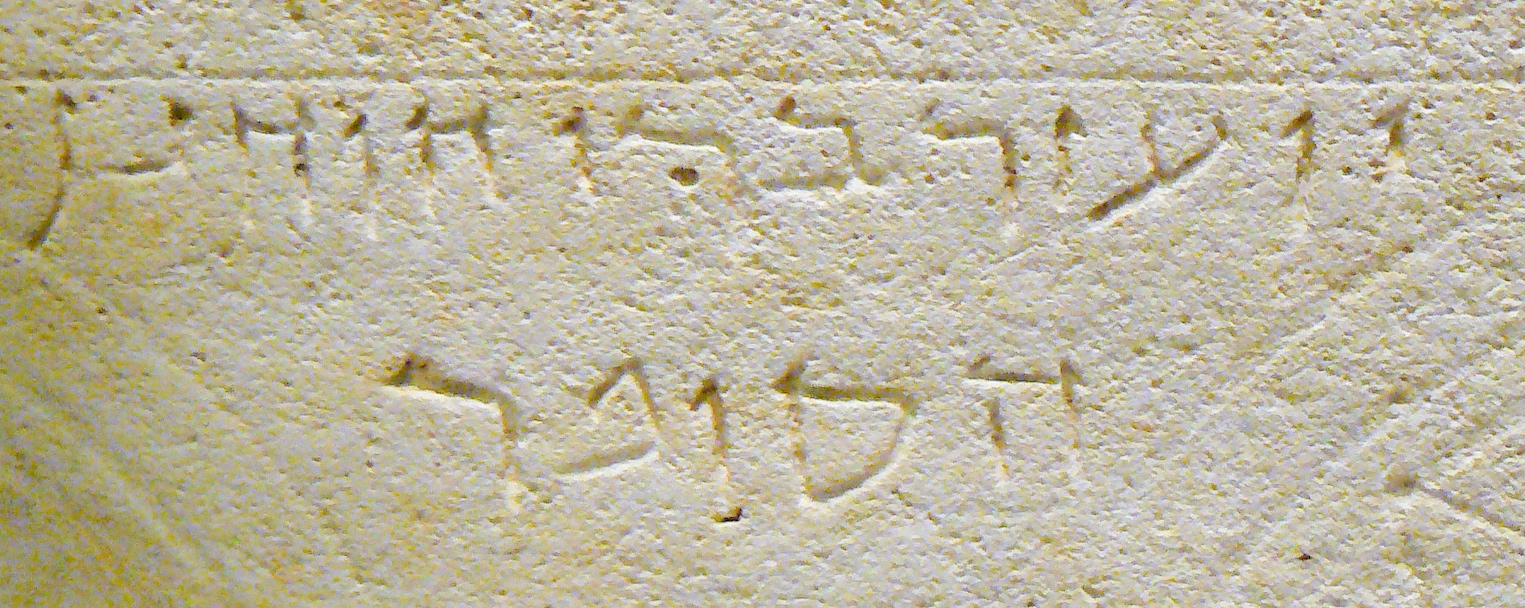 יועזר בר יהוחנן
הסופר